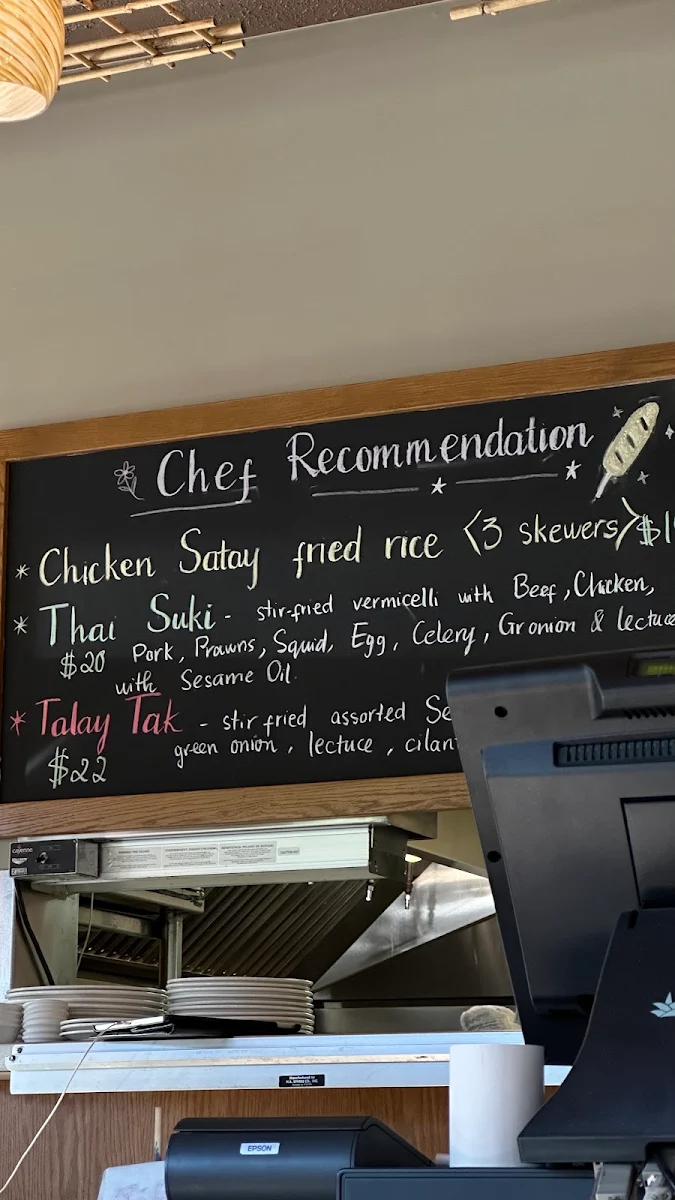 Chef Recommendation
* Chicken Satay fried rice <3 skewers>
* Thai Suki - stir-fried vermicelli with Beef, Chicken,
$20 Pork, Prawns, Squid, Egg, Celery, Gronion &
with Sesame Oil.
* Talay Tak - stir fried assorted
$22 green onion, lectuce,
cayenne
EPSON